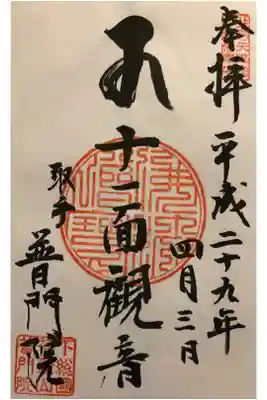 奉拝
平成二十九年
四月三日
十一面觀音
取手
普門院
佛法僧寶